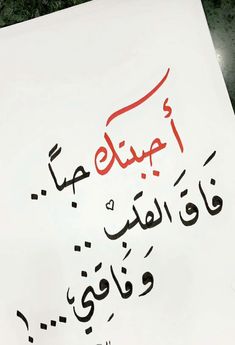 أحببتك حباً..
فَاقَ القلب ..
وَفَاقِني، ....!